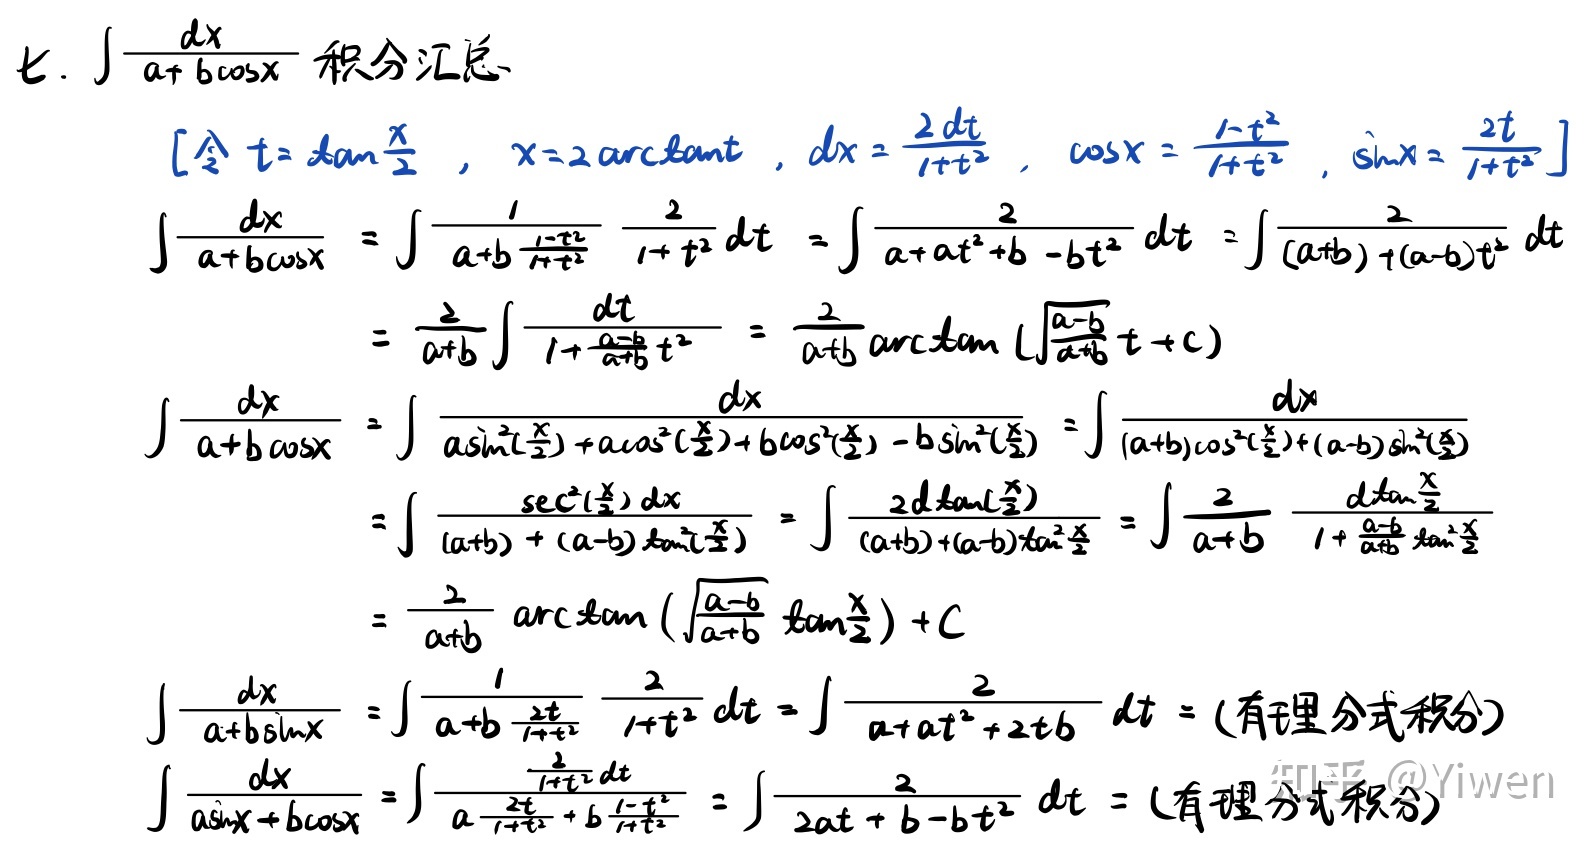 七. ∫ dx/(a+bcosx) 积分汇总
[令 t = tan x/2 , x=2arctant , dx = 2dt/(1+t²) , cosx = (1-t²)/(1+t²) , sinx = 2t/(1+t²)]
∫ dx/(a+bcosx) = ∫ 1/(a+b (1-t²)/(1+t²)) 2/(1+t²) dt = ∫ 2/(a+at²+b-bt²) dt = ∫ 2/((a+b)+(a-b)t²) dt
= 2/(a+b) ∫ dt/(1+ (a-b)/(a+b) t²) = 2/(a+b) arctan (√((a-b)/(a+b)) t + C)
∫ dx/(a+bcosx) = ∫ dx/(asin²(x/2)+acos²(x/2)+bcos²(x/2)-bsin²(x/2)) = ∫ dx/((a+b)cos²(x/2)+(a-b)sin²(x/2))
= ∫ sec²(x/2)dx/((a+b)+(a-b)tan²(x/2)) = ∫ 2dtan(x/2)/((a+b)+(a-b)tan² x/2) = ∫ 2/(a+b) dtan x/2/(1+ (a-b)/(a+b) tan² x/2)
= 2/(a+b) arctan (√((a-b)/(a+b)) tan x/2) + C
∫ dx/(a+bsinx) = ∫ 1/(a+b 2t/(1+t²)) 2/(1+t²) dt = ∫ 2/(a+at²+2tb) dt = (有理分式积分)
∫ dx/(asinx+bcosx) = ∫ 2/(1+t²) dt/(a 2t/(1+t²) + b (1-t²)/(1+t²)) = ∫ 2/(2at+b-bt²) dt = (有理分式积分)
知乎 @Yiwen